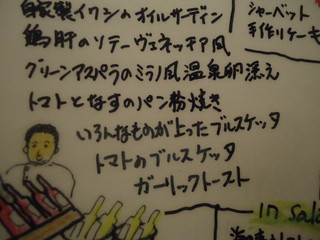 自家製イワシのオイルサーディン
鶏肝のソテーヴェネッチア風
グリーンアスパラのミラノ風温泉卵添え
トマトとなすのパン粉焼き
いろんなものが上ったブルスケッタ
トマトのブルスケッタ
ガーリックトースト
シャーベット
手作りケーキ
in Sala